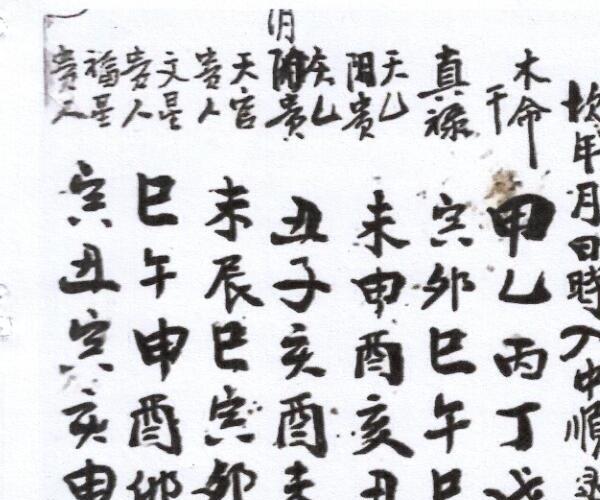 年月日時入中順
本命干 甲乙丙丁戊
真祿 寅卯巳午巳
天乙阳贵 未申酉亥丑
天乙阴贵 丑子亥酉未
天官贵人 未辰巳寅卯
文星贵人 巳午申酉
福星贵人 寅丑寅亥申